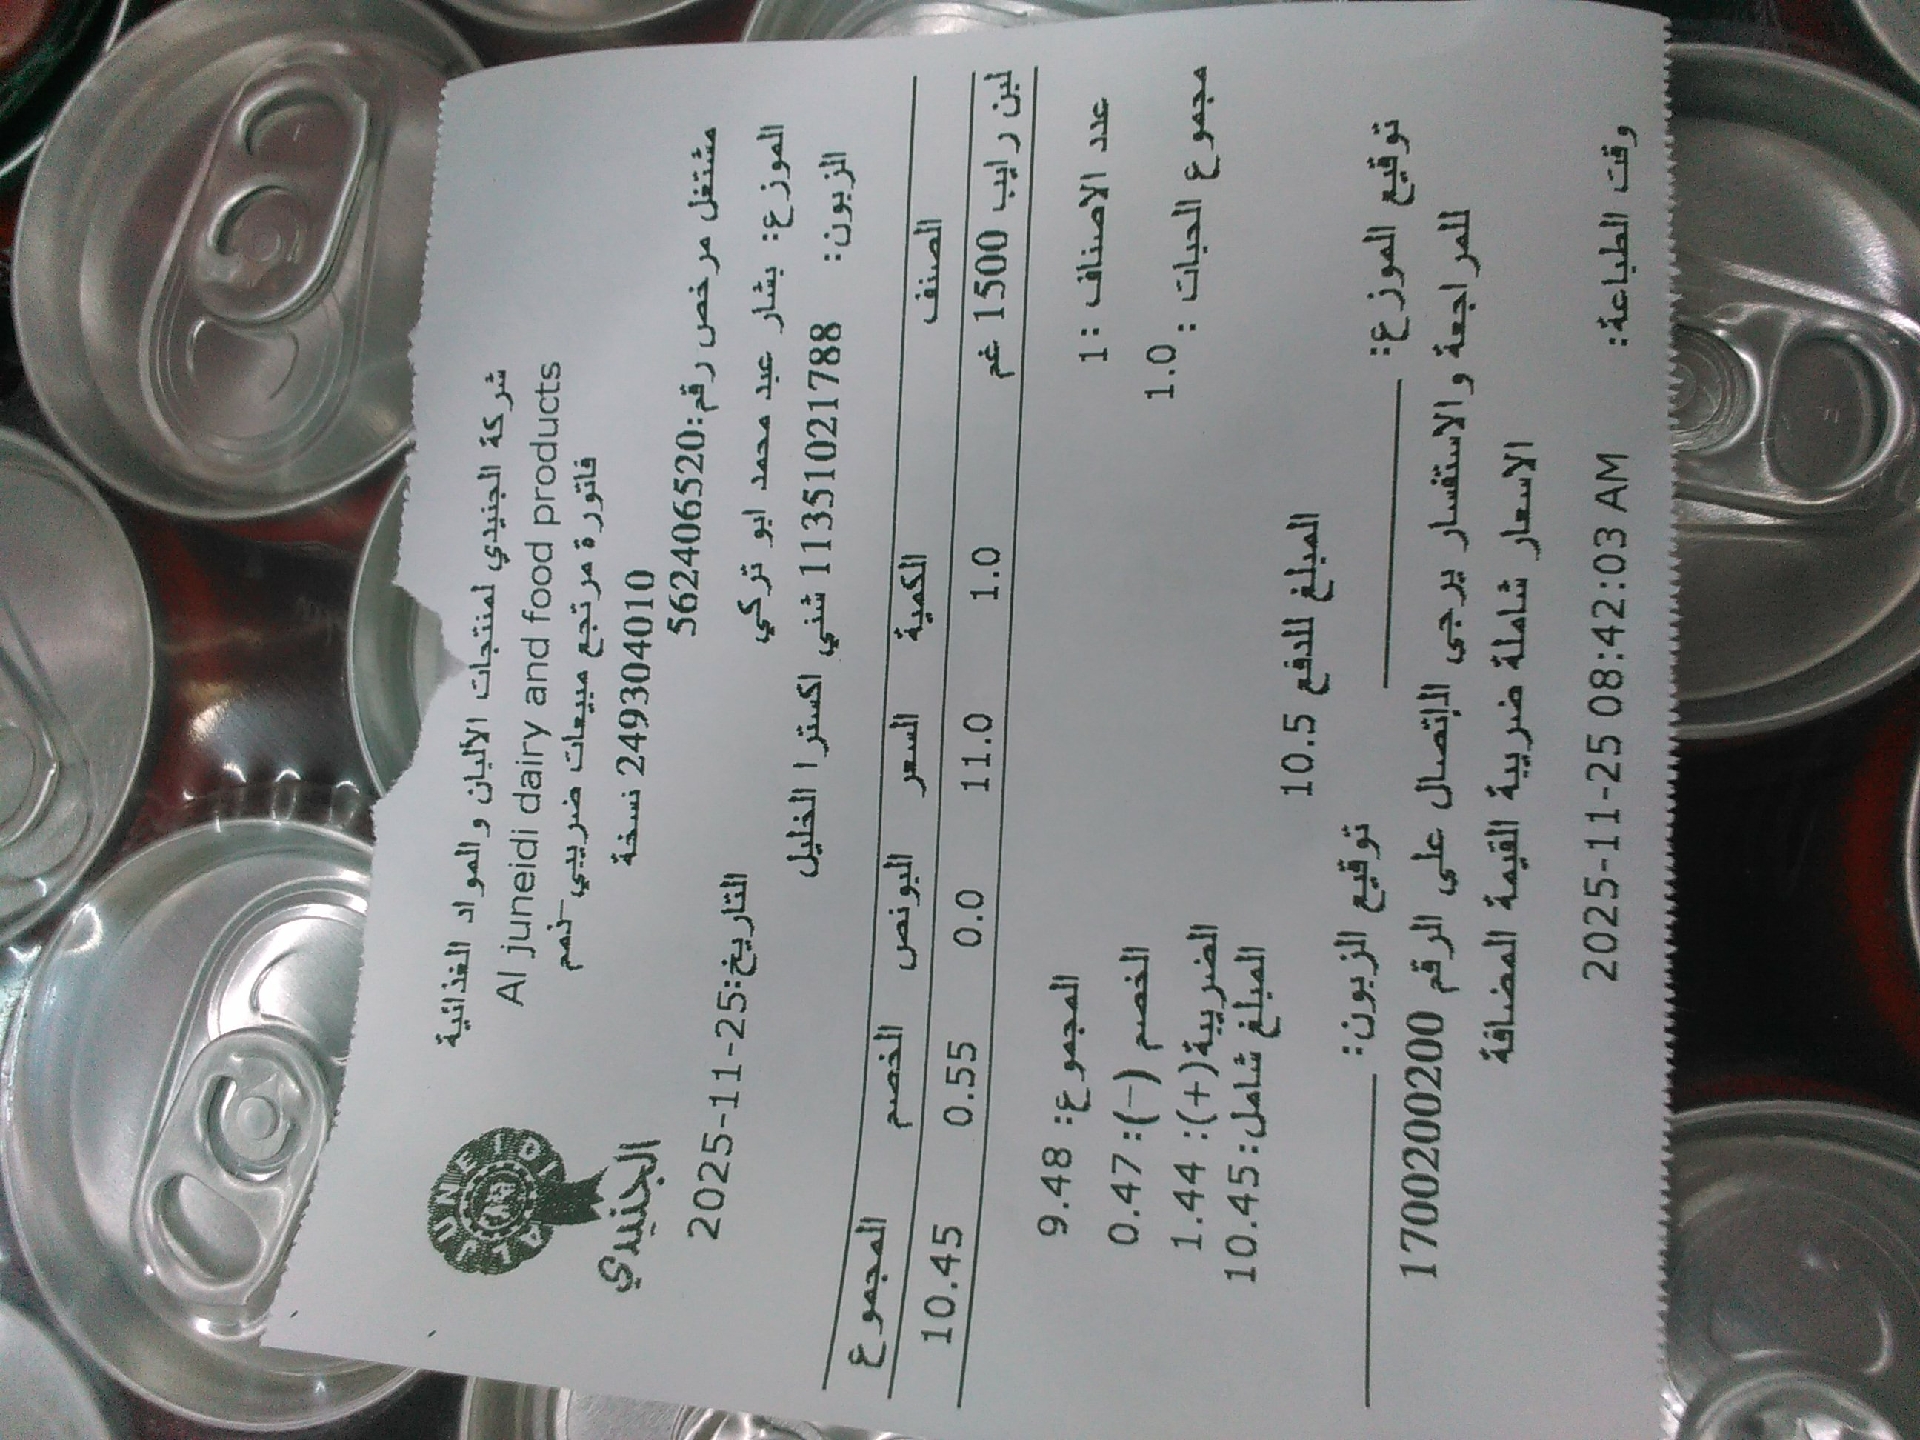 شركة الجنيدي لمنتجات الألبان والمواد الغذائية
Al juneidi dairy and food products
فاتورة مرتجع مبيعات ضريبي ذمم
249304010 نسخة
AL JUNEIDI
الجنيدي
مشتغل مرخص رقم:562406520
الموزع: بشار عبد محمد ابو تركي
التاريخ:2025-11-25
الزبون: 11351021788 شني اكسترا الخليل
الصنف الكمية السعر البونص الخصم المجموع
لبن رايب 1500 غم 1.0 11.0 0.0 0.55 10.45
عدد الاصناف :1
المجموع: 9.48
مجموع الحبات : 1.0
الخصم (-): 0.47
الضريبة(+): 1.44
المبلغ شامل: 10.45
المبلغ للدفع 10.5
توقيع الموزع: توقيع الزبون:
للمراجعة والاستفسار يرجى الإتصال على الرقم 1700200200
الاسعار شاملة ضريبة القيمة المضافة
وقت الطباعة: 2025-11-25 08:42:03 AM